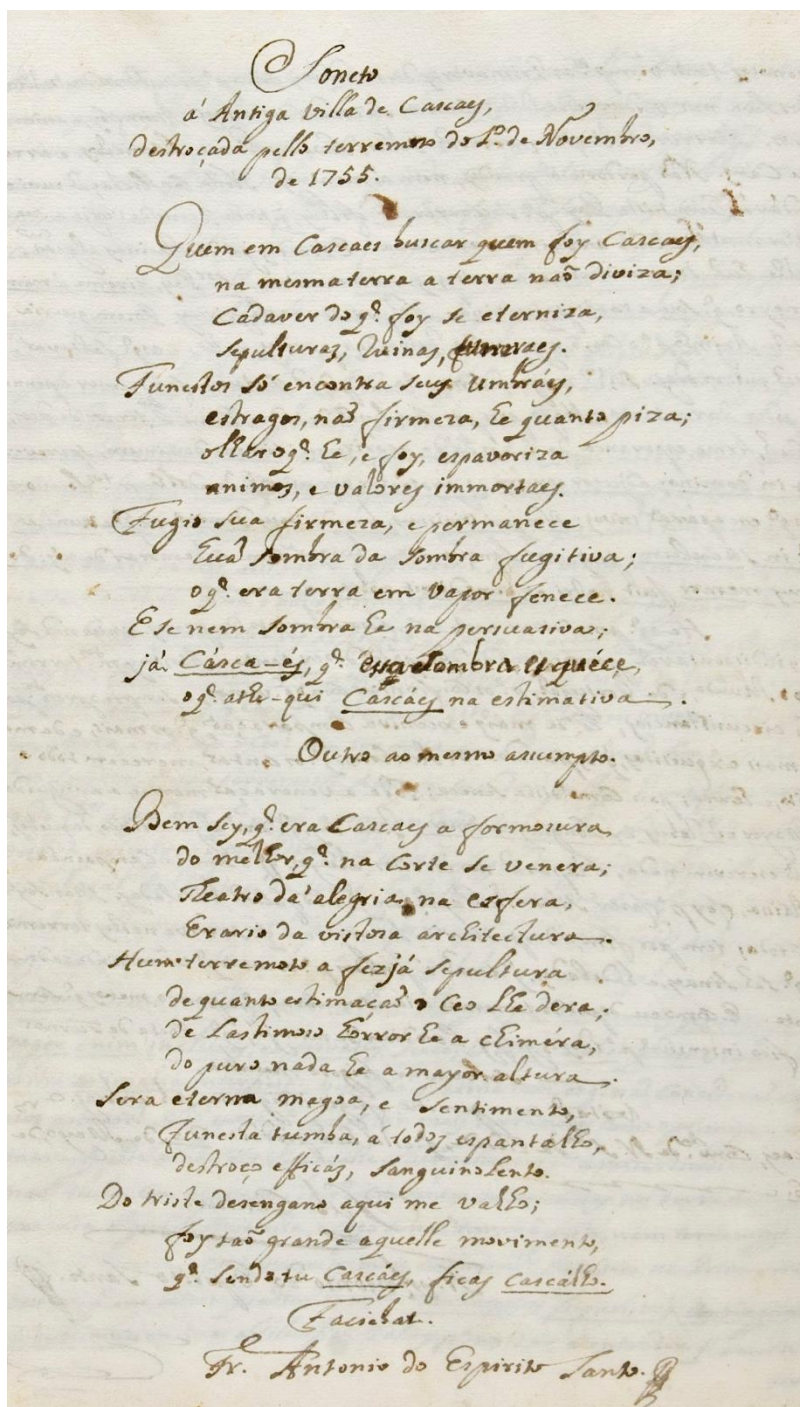 Soneto
á Antiga villa de Cascaes,
destroçada pello terremoto do 1º. de Novembro,
de 1755.
Quem em Cascaes buscar quem foy Cascaes,
na mesma terra a terra naõ diviza;
Cadaver do q̃. foy se eterniza,
sepulturas, Ruinas, funeraes.
Funestos só encontra seus umbráes,
estragos, naõ firmeza, he quanto piza;
olhar o q̃. he, e foy, espavoriza
animos, e valores immortaes.
Fugio sua firmeza, e permanece
huã sombra da sombra fugitiva;
o q̃. era terra em vapor fenece.
E se nem sombra he na persuasiva;
já Cásca-és, q̃. sombra
o q̃. athe-qui Cascáes na estimativa.
Outro ao mesmo assumpto.
Bem sey, q̃. era Cascaes a formosura
do melhor, q̃. na Corte se venera;
Theatro da alegria na esfera,
Erario da vistosa architectura.
Hum terremoto a fez já sepultura
de quanto estimaçaõ o Ceo lhe dera;
de Lastimoso hórror he a chiméra,
do puro nada he a mayor altura.
Sera eterna magoa, e sentimento,
funesta tumba, á todos espantalho,
destroço efficáz, sanguinolento.
Do triste desengano aqui me valho;
foy taõ grande aquelle movimento,
q̃. sendo tu Cascáes, ficas Cascálho.
Faciebat.
Fr. Antonio do Espirito Santo.